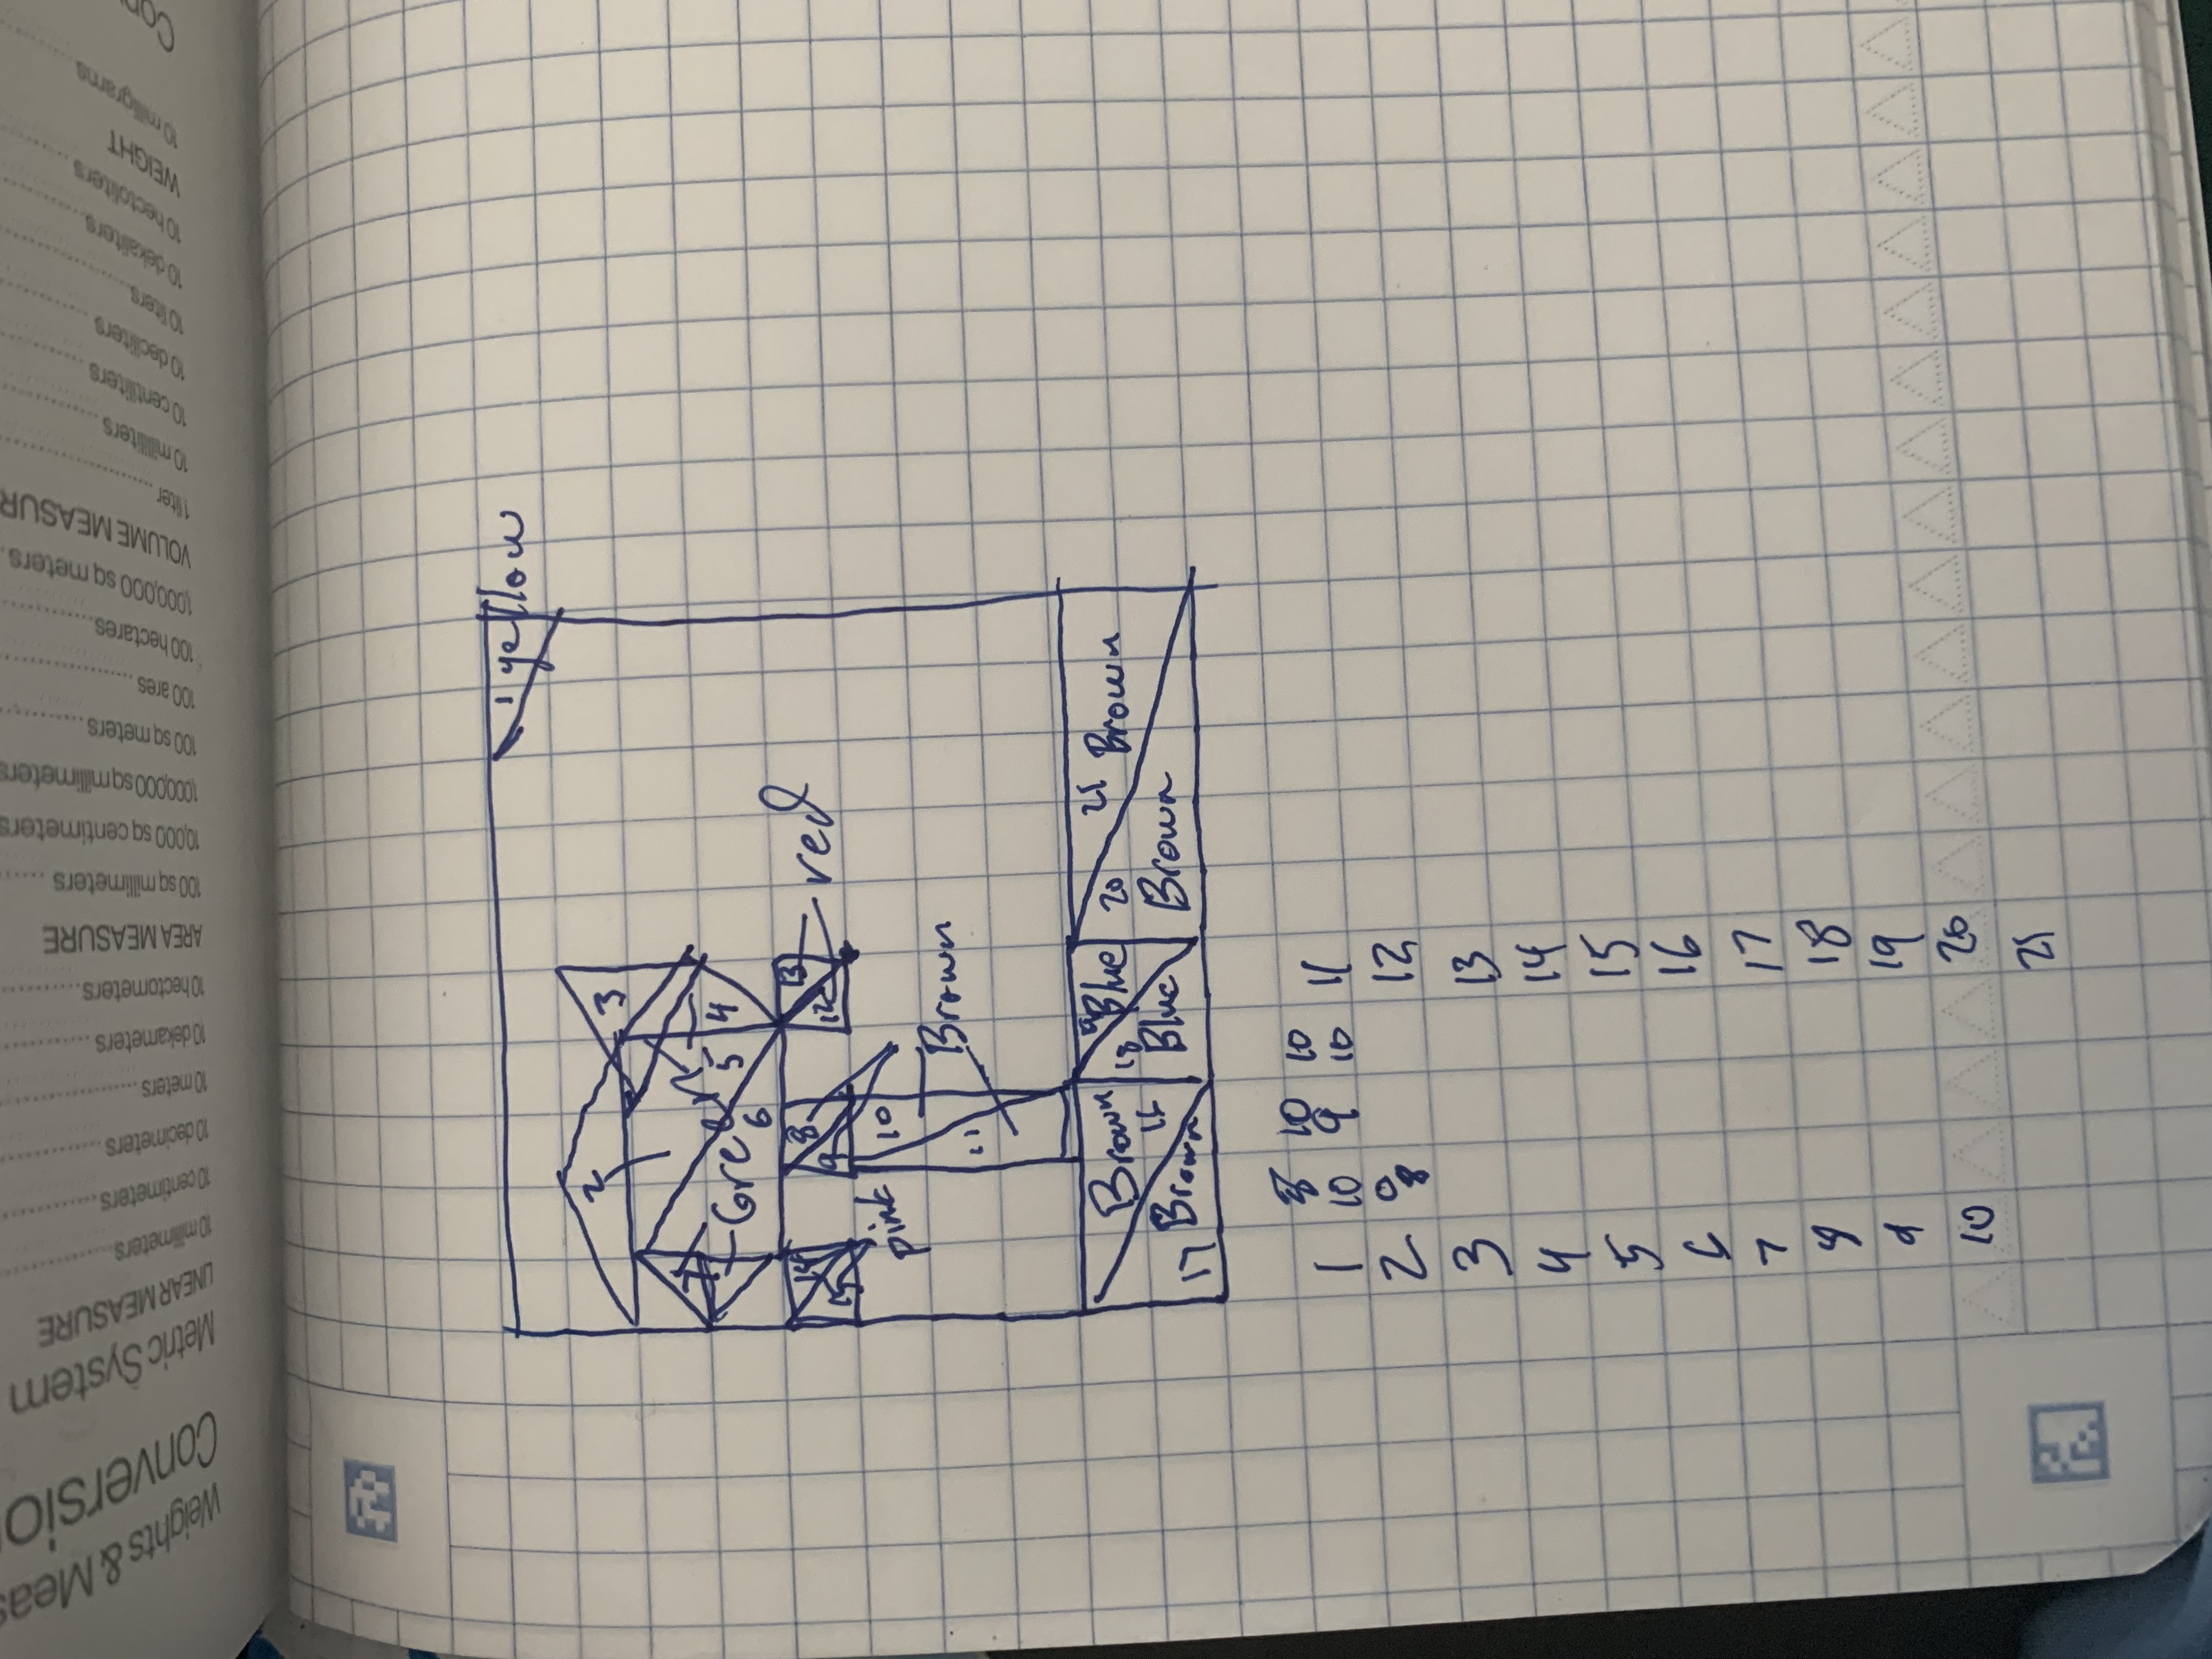 Weights & Meas
Conversio
Metric System
LINEAR MEASURE
10 millimeters
10 centimeters
10 decimeters
10 meters
10 dekameters
10 hectometers
AREA MEASURE
100 sq millimeters
10,000 sq centimeters
1,000,000 sq millimeters
100 sq meters
100 ares
100 hectares
1,000,000 sq meters
VOLUME MEASUR
1 liter
10 milliliters
10 centiliters
10 deciliters
10 liters
10 dekaliters
10 hectoliters
WEIGHT
10 milligrams
1 yellow
2 3
Green 5 4
6
14 8 13
15 9 12 red
pink 10
Brown
11
Brown 19 Blue 21 Brown
16 18 20
17 Brown Blue Brown
8 10 10
1 10 9 10 11
2 0 12
8
3 13
4 14
5 15
6 16
7 17
8 18
9 19
10 20
21